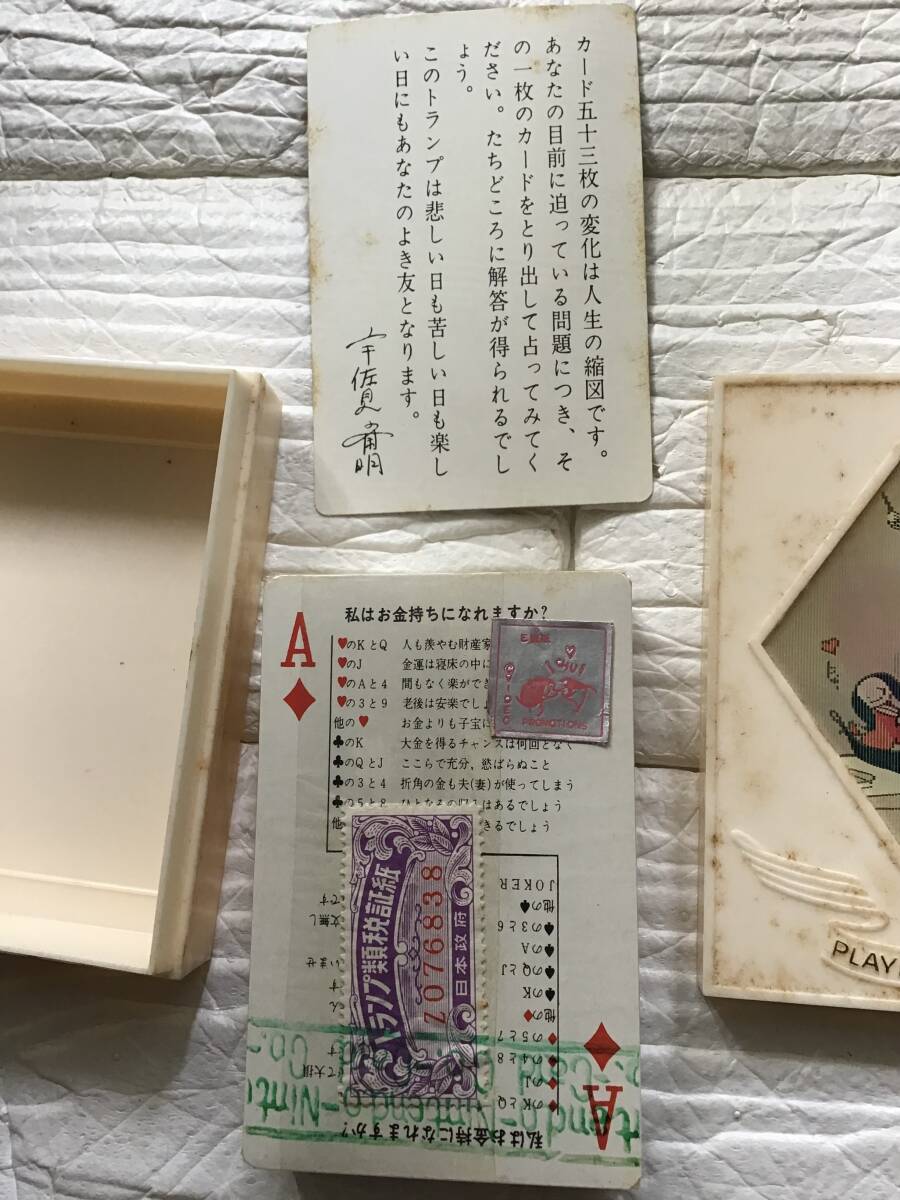 カード五十三枚の変化は人生の縮図です。
あなたの目前に迫っている問題につき、そ
の一枚のカードをとり出して占ってみてく
ださい。たちどころに解答が得られるでし
ょう。
このトランプは悲しい日も苦しい日も楽し
い日にもあなたのよき友となります。
宇佐見斎明
A
私はお金持ちになれますか?
♥のKとQ 人も羨やむ財産家
♥のJ 金運は寝床の中に
♥のAと4 間もなく楽ができ
♥の3と9 老後は安楽でしょ
他の♥ お金よりも子宝に
♣のK 大金を得るチャンスは何回となく
♣のQとJ ここらで充分、慾ばらぬこと
♣の3と4 折角の金も夫(妻)が使ってしまう
♣の5と8 ひとなみの収入はあるでしょう
他 きるでしょう
PROMOTIONS
トランプ類税証紙
Z076838
日本政府
JOKER
他の♠
♠の3と6
♠のA
♠のQとJ
♠のK
他の♦
♦の5と7
♦の4と8
♦のJ
♦のKとQ
文無し
です
いませ
す
ん
て大損
す
私はお金持になれますか?
A
Nintendo
Card Co.
PLAY